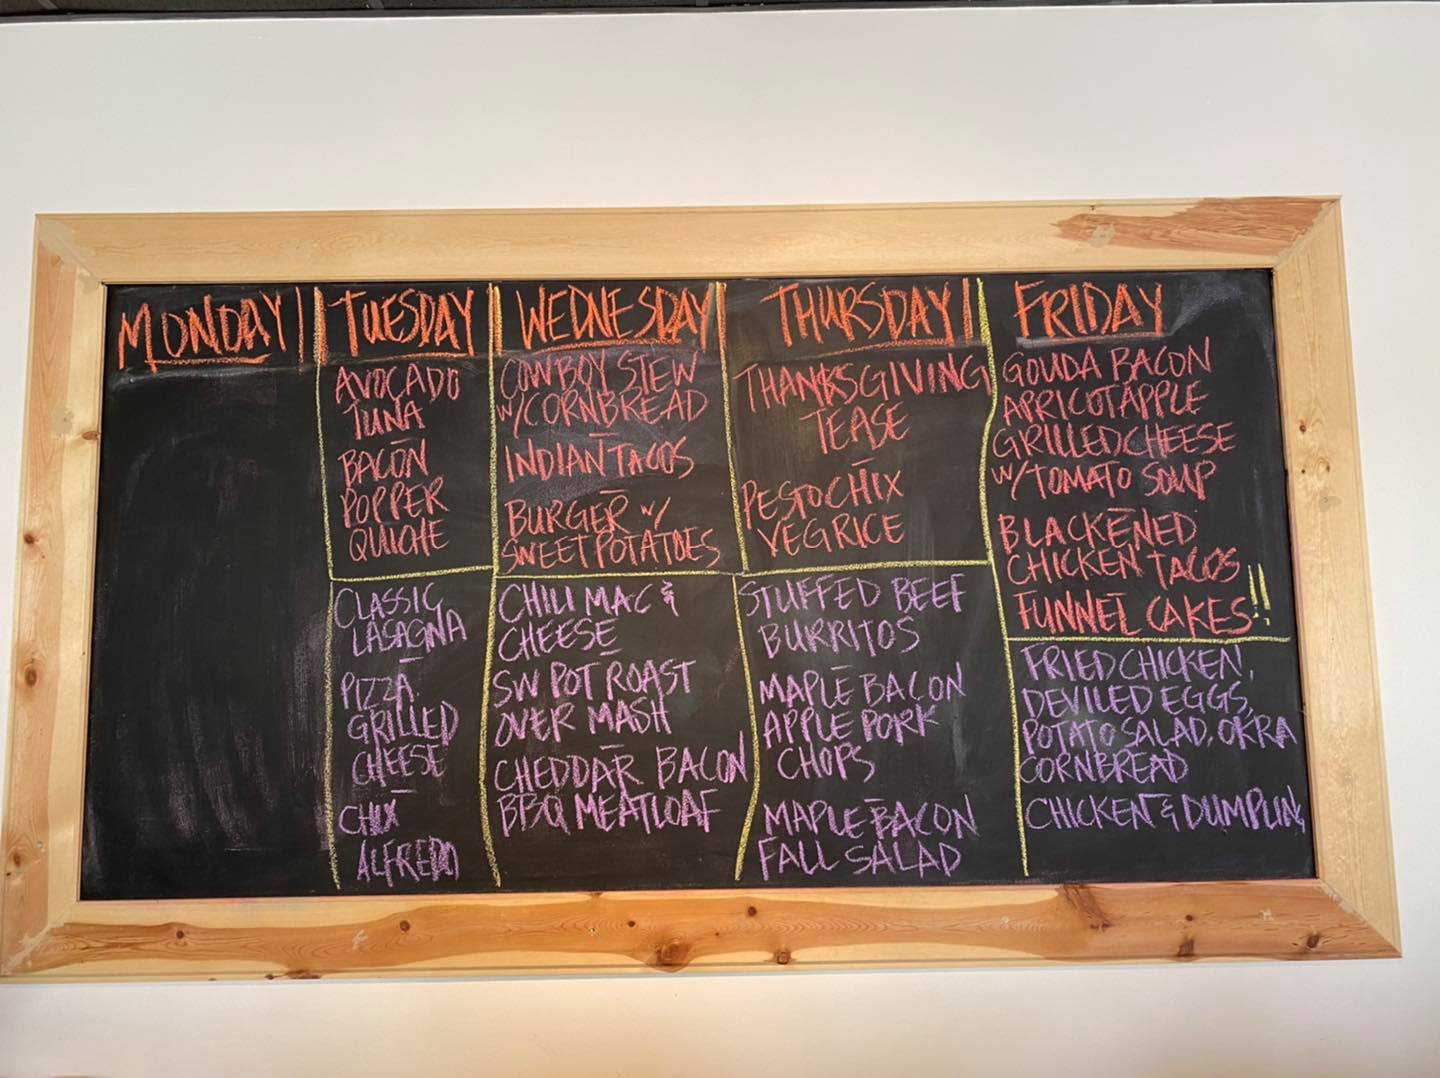 MONDAY
TUESDAY
AVOCADO
TUNA
BACON
POPPER
QUICHE
CLASSIC
LASAGNA
PIZZA
GRILLED
CHEESE
CHIX
ALFREDO
WEDNESDAY
COWBOY STEW
W/CORNBREAD
INDIAN TACOS
BURGER W/
SWEET POTATOES
CHILI MAC &
CHEESE
SW POT ROAST
OVER MASH
CHEDDAR BACON
BBQ MEATLOAF
THURSDAY
THANKSGIVING
TEASE
PESTO CHIX
VEG RICE
STUFFED BEEF
BURRITOS
MAPLE BACON
APPLE PORK
CHOPS
MAPLE BACON
FALL SALAD
FRIDAY
GOUDA BACON
APRICOT APPLE
GRILLED CHEESE
W/TOMATO SOUP
BLACKENED
CHICKEN TACOS
FUNNEL CAKES!!
FRIED CHICKEN,
DEVILED EGGS,
POTATO SALAD, OKRA
CORNBREAD
CHICKEN & DUMPLING